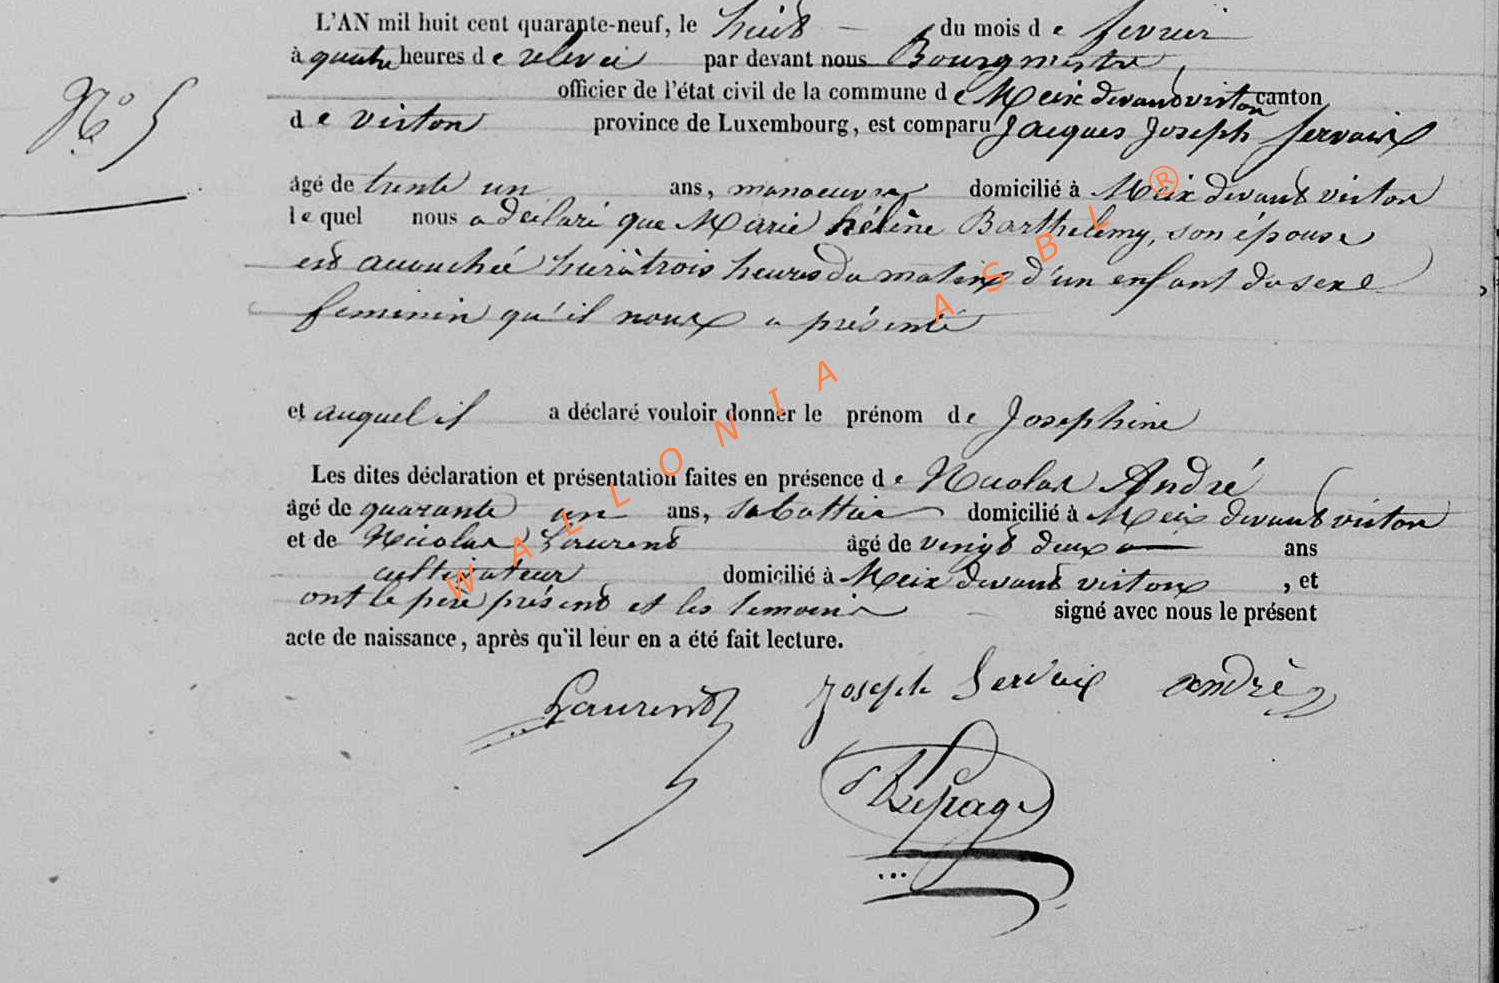 L'AN mil huit cent quarante-neuf, le huit du mois de fevrier
à quatre heures de relevée par devant nous Bourgmestre,
officier de l'état civil de la commune de Meix devant virton canton
de virton province de Luxembourg, est comparu Jacques Joseph Servais
N° 5
âgé de trente un ans, manoeuvre domicilié à Meix devant virton
lequel nous a declaré que Marie hélène Barthelemy, son épouse
est accouchée hier à trois heures du matin d'un enfant du sexe
feminin qu'il nous a présenté
et auquel il a déclaré vouloir donner le prénom de Josephine
Les dites déclaration et présentation faites en présence de Nicolas André
âgé de quarante un ans, sabottier domicilié à Meix devant virton
et de Nicolas Laurent âgé de vingt deux ans
cultivateur domicilié à Meix devant virton, et
ont le père présent et les temoins signé avec nous le présent
acte de naissance, après qu'il leur en a été fait lecture.
Laurent Joseph Servais andrè
Lepage
WALLONIA ASBL ®